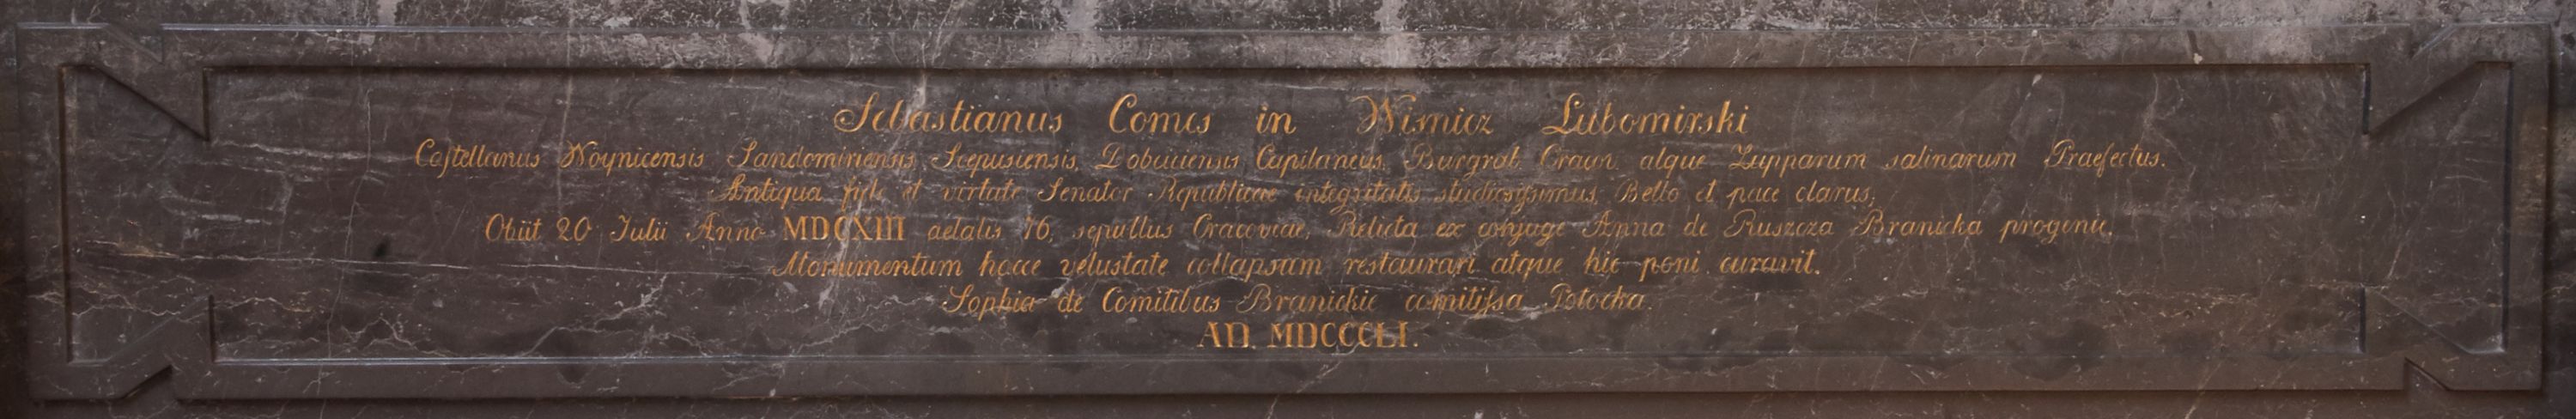 Sebastianus Comes in Wisnicz Lubomirski
Castellanus Woynicensis Sandomiriensis, Scepusiensis, Dobciciensis Capitaneus, Burgrab. Cracov. atque Zupparum salinarum Praefectus.
Antiqua fide et virtute Senator Republicae integritatis studiosissimus, Bello et pace clarus,
Obiit 20 Julii Anno MDCXIII aetatis 76, sepultus Cracoviae, Relicta ex conjuge Anna de Ruszcza Branicka progenie,
Monumentum hocce vetustate collapsum restaurari atque hic poni curavit.
Sophia de Comitibus Branickie comitissa Potocka.
AD. MDCCCLI.